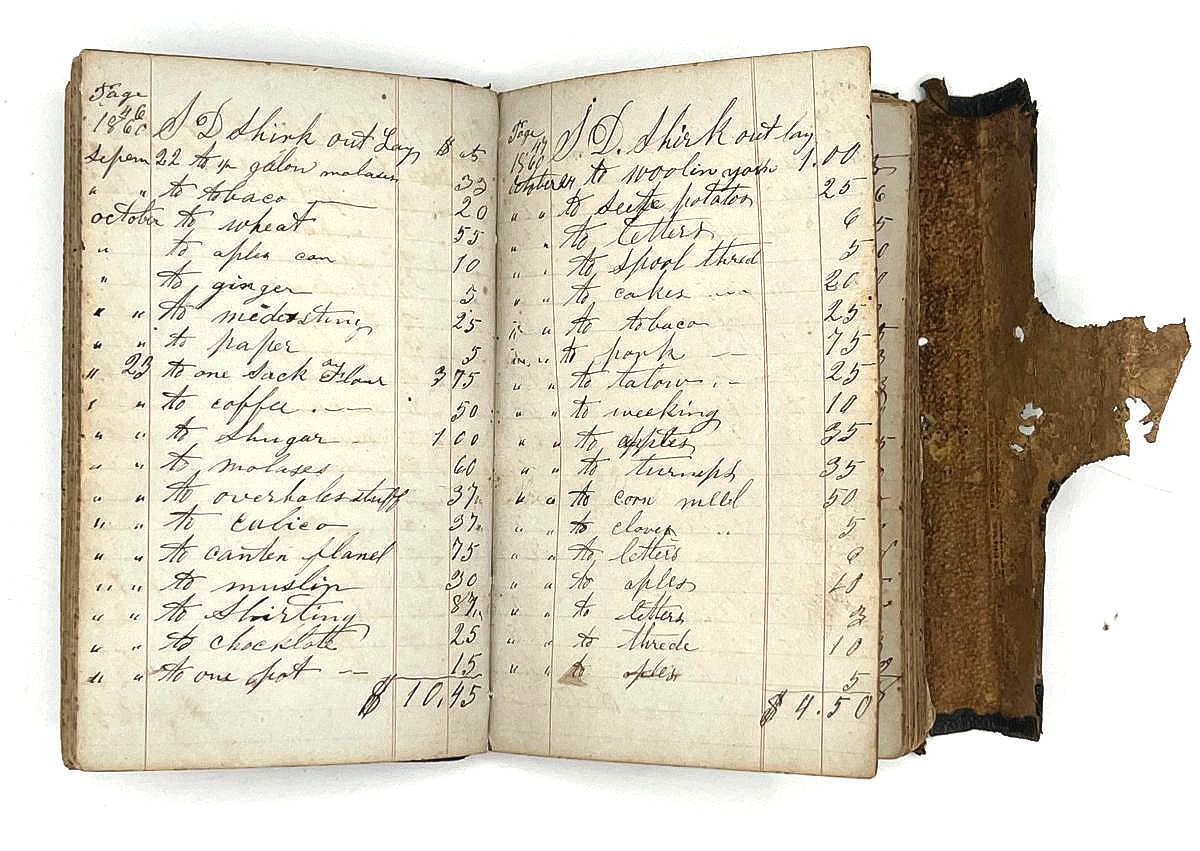 Page
46
1860 S D Shirk out Lay $ c5
Sepem 22 to galon molases 33
" " to tobaco 20
october to wheat 55
" to aples can 10
" to ginger 5
" " to medesting 25
" " to paper 5
" 23 to one Sack of Flour 3 75
" " to coffee 50
" " to Shugar 1 00
" " to molases 60
" " to overhales stuff 37
" " to calico 37
" " to canten flanel 75
" " to muslin 30
" " to Shirting 87
" " to chocklate 25
" " to one pot 15
$ 10.45
Page
47
1860 S. D. Shirk out lay
october 24 to woolin yarn 1.00
" " to potatos 25
" " to letters 6
" " to spool thred 5
" " to cakes 20
" " to tobaco 25
" " to pork 75
" " to talow 25
" " to weeking 10
" " to apples 35
" " to turneps 35
" " to corn meel 50
" " to cloves 5
" " to letters 6
" " to aples 10
" " to letters 3
" " to threde 10
" " to aples 5
$ 4.50